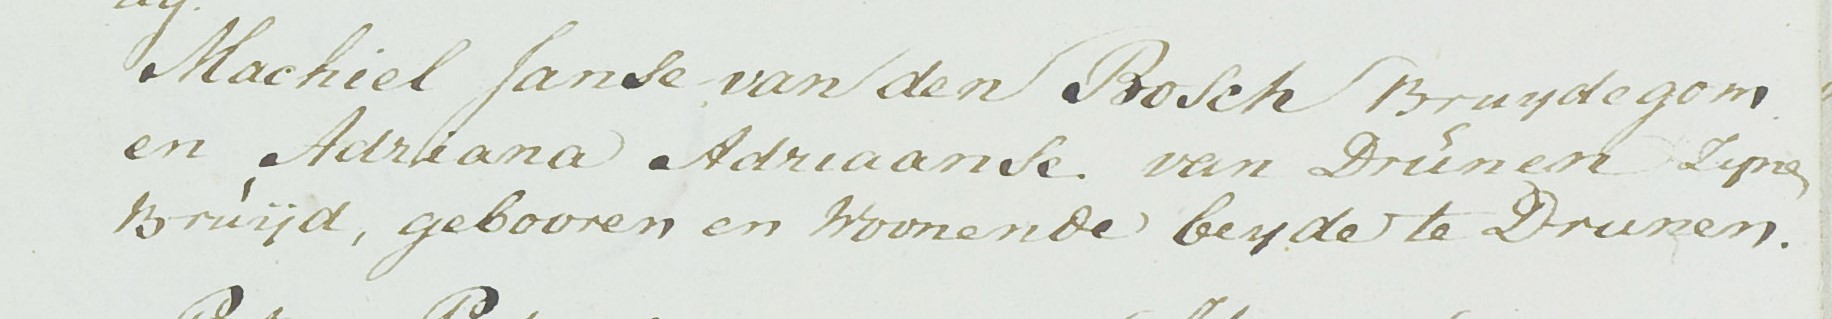 Machiel Janse van den Bosch Bruydegom
en Adriana Adriaanse van Drúnen Zyne
Brúijd, gebooren en Woonende beyde te Drunen.